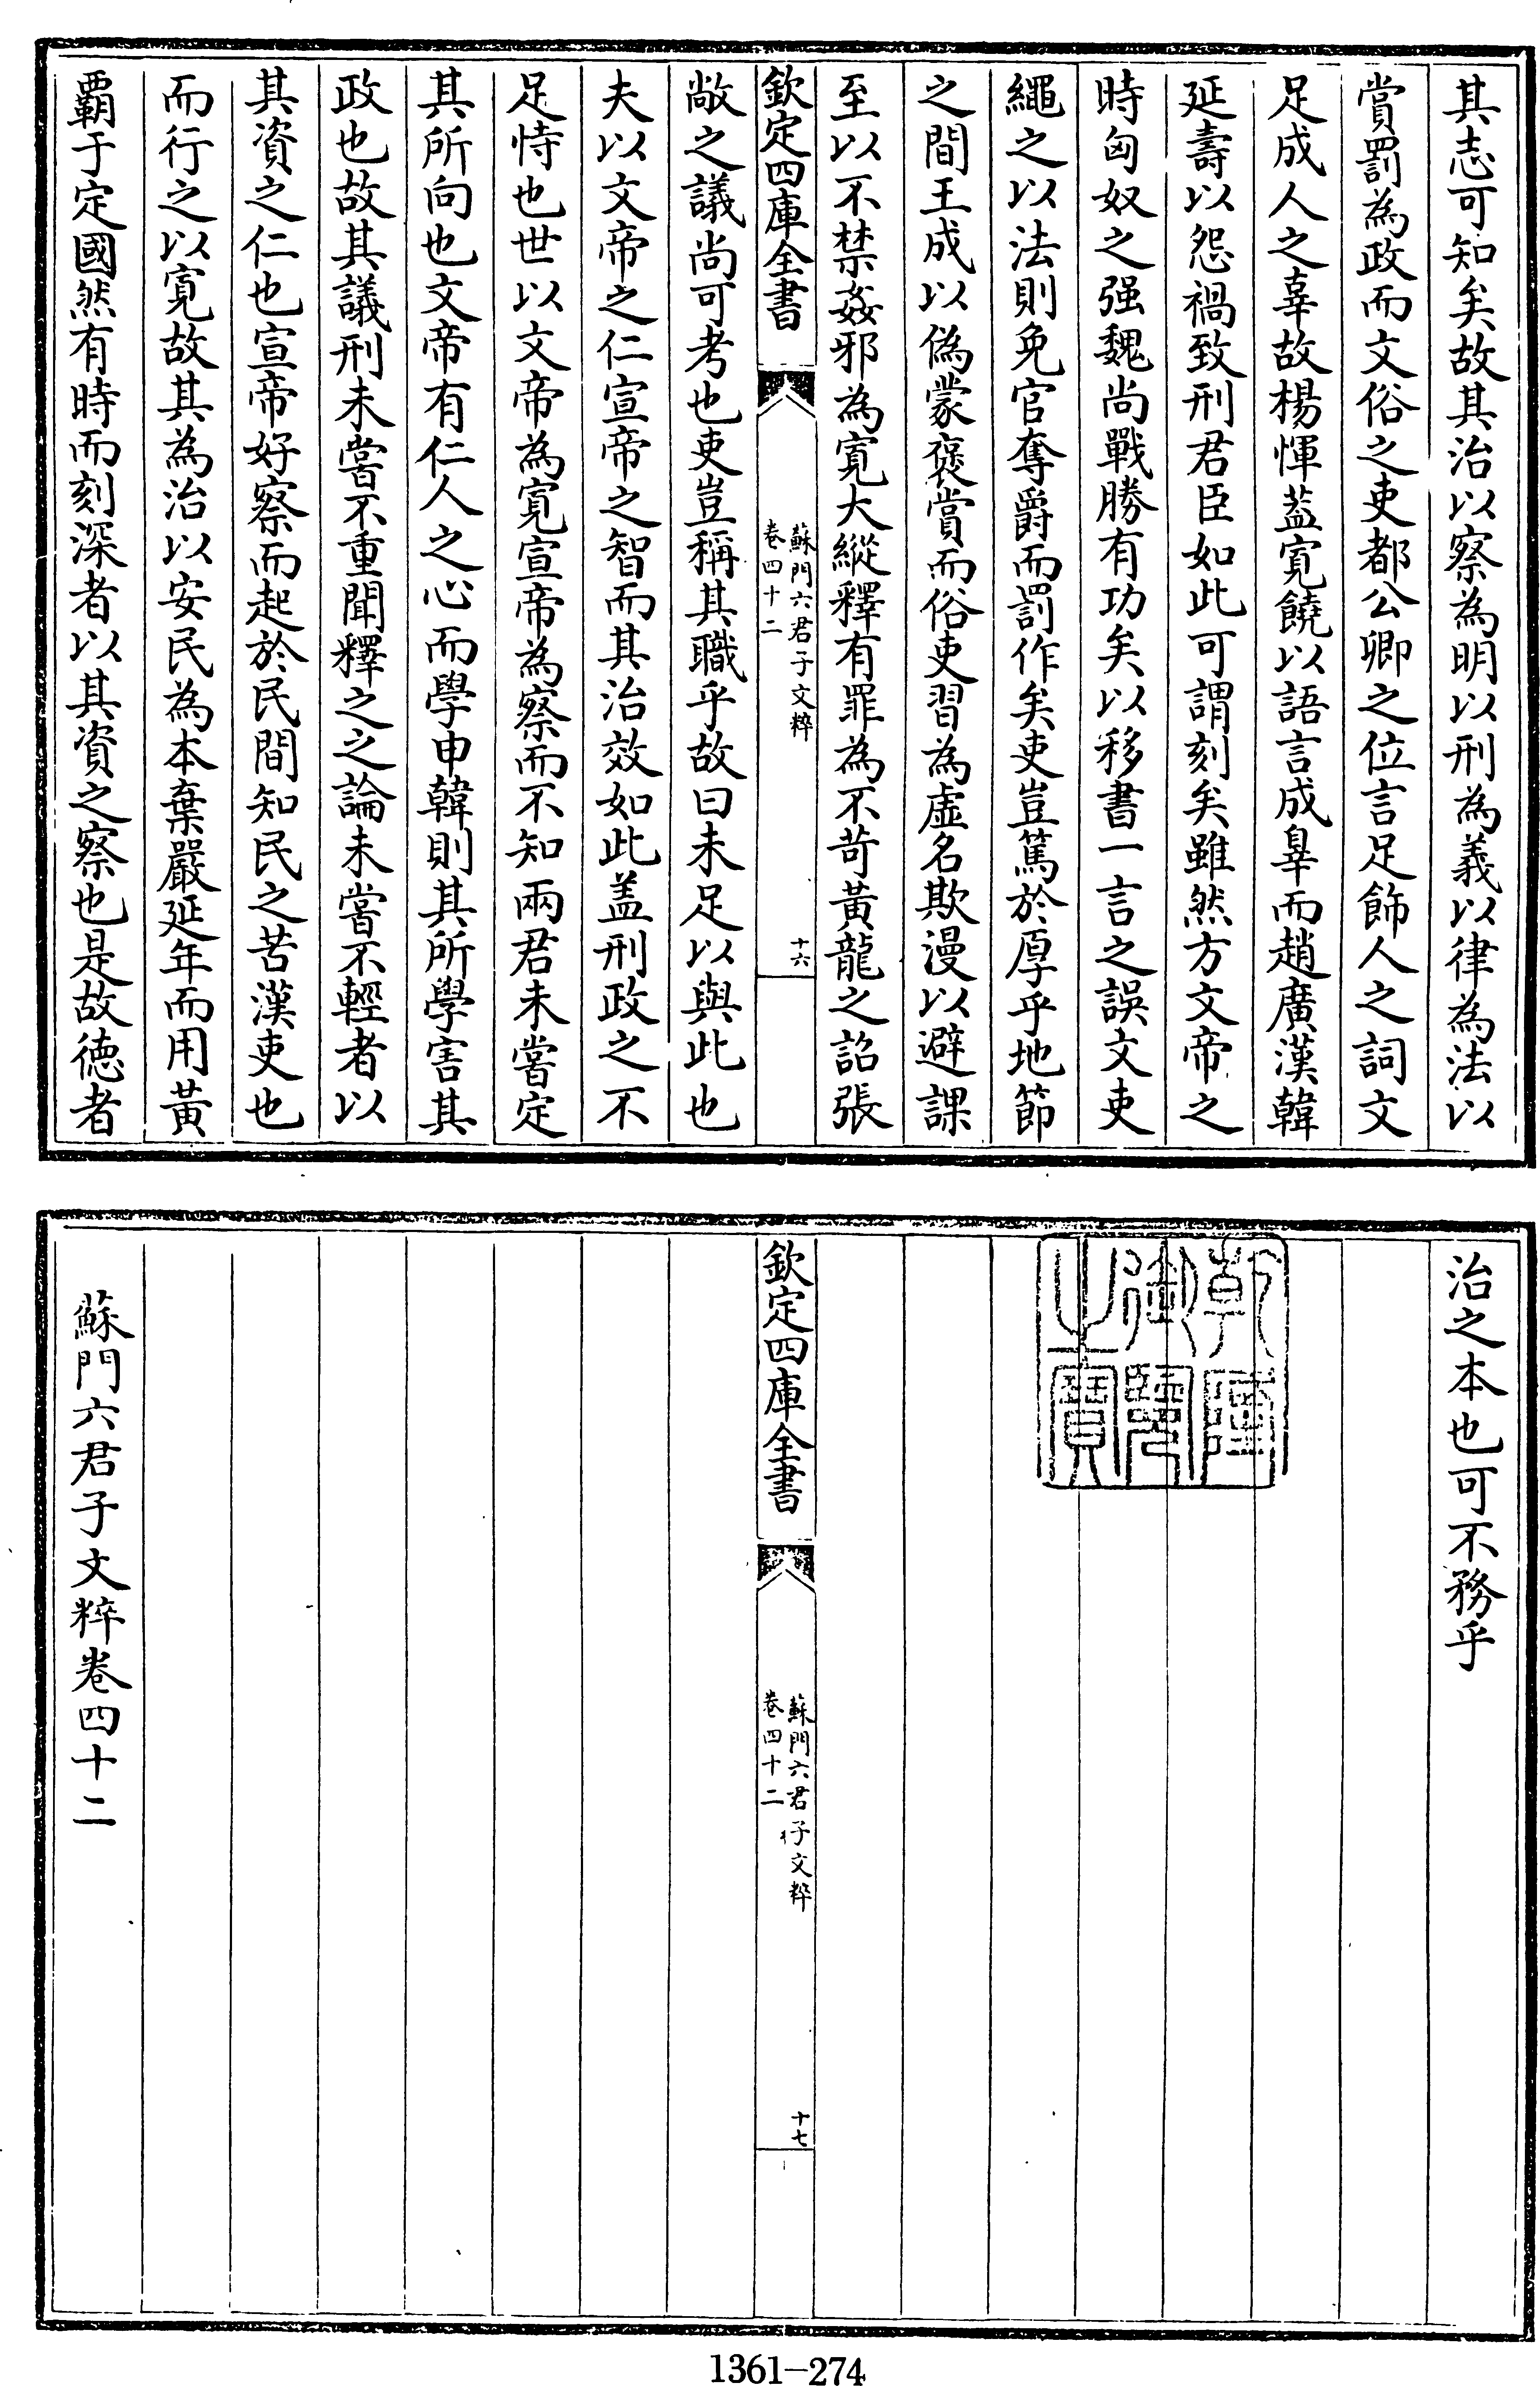 其志可知矣故其治以察為明以刑為義以律為法以
賞罰為政而文俗之吏都公卿之位言足飾人之詞文
足成人之辜故楊惲葢寛饒以語言成辠而趙廣漢韓
延壽以怨禍致刑君臣如此可謂刻矣雖然方文帝之
時匈奴之强魏尚戰勝有功矣以移書一言之誤文吏
繩之以法則免官奪爵而罰作矣吏豈篤於厚乎地節
之間王成以偽蒙褒賞而俗吏習為虚名欺漫以避課
至以不禁姦邪為寛大縱釋有罪為不苛黃龍之詔張
欽定四庫全書
蘇門六君子文粹
卷四十二
十六
敞之議尚可考也吏豈稱其職乎故曰未足以與此也
夫以文帝之仁宣帝之智而其治效如此盖刑政之不
足恃也世以文帝為寛宣帝為察而不知兩君未嘗定
其所向也文帝有仁人之心而學申韓則其所學害其
政也故其議刑未嘗不重聞釋之之論未嘗不輕者以
其資之仁也宣帝好察而起於民間知民之苦漢吏也
而行之以寛故其為治以安民為本棄嚴延年而用黃
覇于定國然有時而刻深者以其資之察也是故徳者
治之本也可不務乎
乾隆
御覽
之寶
欽定四庫全書
蘇門六君子文粹
卷四十二
十七
蘇門六君子文粹卷四十二
1361-274